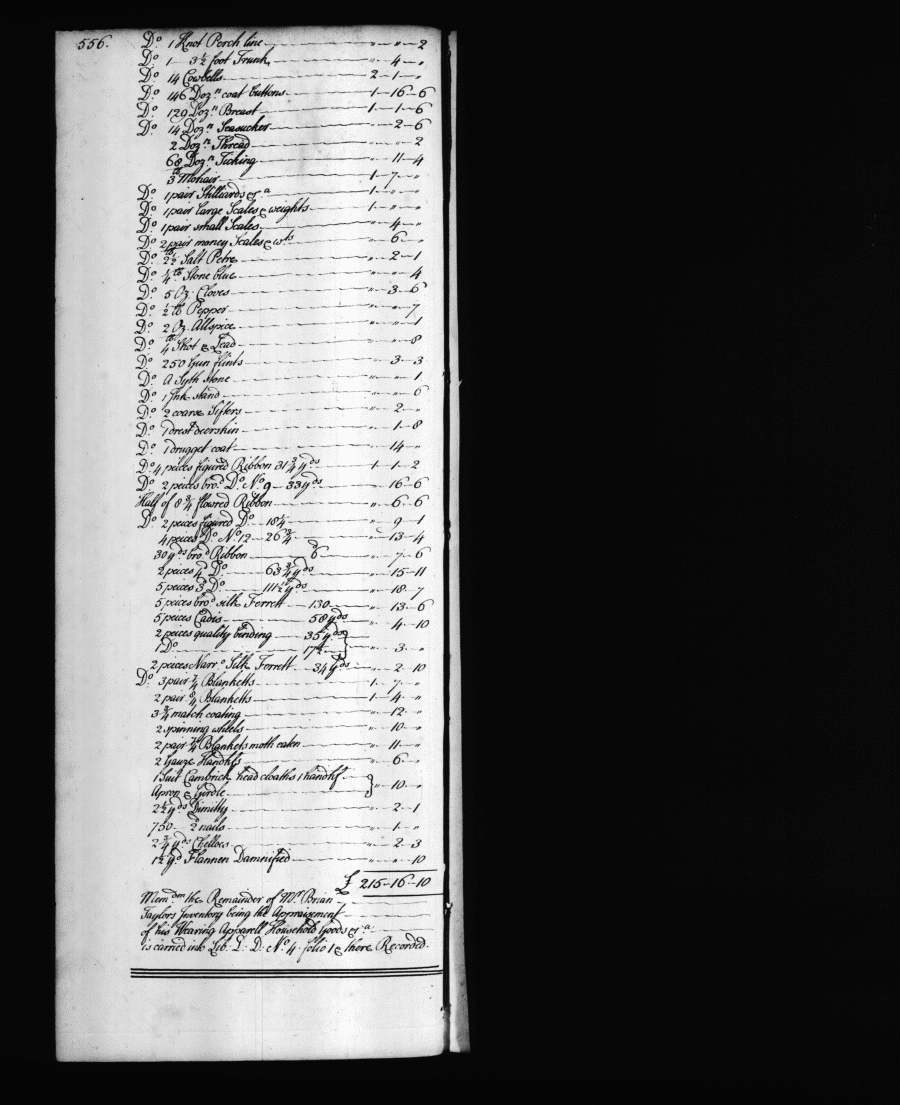 556.
Do. 1 Knot Perch line " " 2
Do 1 3½ foot Trunk " 4 "
Do 14 Cowbells 2 1 "
Do 146 Dozn coat buttons 1 16 6
Do 129 Dozn Breast 1 1 6
Do 14 Dozn Seasucker 2 6
2 Dozn Thread " " 2
68 Dozn Ticking " 11 4
3 lb Mohair 1 7 "
Do 1 pair Stilliards &ca 1 " "
Do 1 pair large Scales & weights 1 " "
Do 1 pair small Scales " 4 "
Do 2 pair money Scales & wts " 6 "
Do 2½ lb Salt Petre " 2 1
Do ¼ lb Stone blue " " 4
Do 5 Oz. Cloves " 3 6
Do ½ lb Pepper " " 7
Do 2 Oz. Allspice " " 1
Do 4 lb Shot & Lead " " 8
Do 250 Gun flints " 3 3
Do A Syth stone " " 1
Do 1 Ink stand " " 6
Do 2 coarse Sifters " 2 "
Do 1 drest deerskin " 1 8
Do 1 drugget coat " 14 "
Do 4 peices figured Ribbon 31¾ yds 1 1 2
Do 2 peices brod Do No 9 33 yds " 16 6
Half of 8¾ flowred Ribbon " 6 6
Do 2 peices figured Do 18¼ " 9 1
4 peices Do No 12 26¾ " 13 4
30 yds brod Ribbon 6d " 7 6
2 peices 4d Do 63¾ yds " 15 11
5 peices 3d Do 111½ yds " 18 7
5 peices brod silk Ferrett 130 " 13 6
5 peices Cadis 58 yds " 4 10
2 peices quality binding 35 yds
1 Do 17½ " 3 "
2 peices Narro Silk Ferrett 34 yds " 2 10
Do 3 pair 7/4 Blanketts 1 7 "
2 pair 8/4 Blanketts 1 4 "
3¾ match coating " 12 "
2 spinning wheels " 10 "
2 pair 7/4 Blankets moth eaten " 11 "
2 Gauze Handkfs " 6 "
1 Suit Cambrick head cloaths 1 handkf
Apron & Girdle " 10 "
2½ yds Dimitty " 2 1
750 2d nails " 1 "
2¾ yds Chelloes " 2 3
1½ yd Flannen Damnified " " 10
£ 215-16-10
Memdm the Remainder of Mr Brian
Taylors Inventory being the Appraisement
of his Wearing Apparell Household Goods &ca
is carried into Lib. D. D. No. 4. folio 1 & there Recorded.